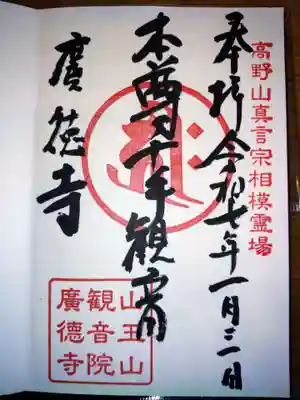 高野山真言宗相模霊場
奉拝令和七年一月三一日
本尊千手観音
廣徳寺
山王山
観音院
廣德寺